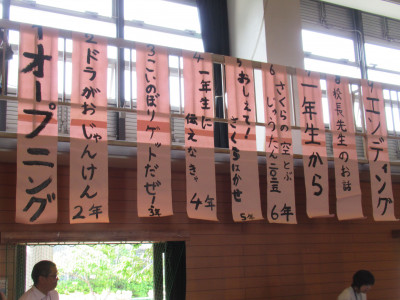 1 オープニング
2 ドラがおじゃんけん
2年
3 こいのぼりゲットだぜ!
3年
4 一年生に
伝えなきゃ。
4年
5 おしえて!
さくらはかせ
5年
6 さくらの空とぶ
じゅうたん二〇二五
6年
7 一年生から
8 校長先生のお話
エンディング